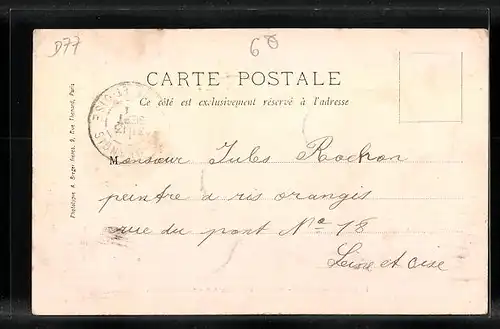 D77
60
CARTE POSTALE
Ce côté est exclusivement réservé à l'adresse
Monsieur Jules Rochon
peintre a ris orangis
rue du pont No 18
Seine et Oise
Phototypie A. Berger frères, 9, Rue Thénard, Paris